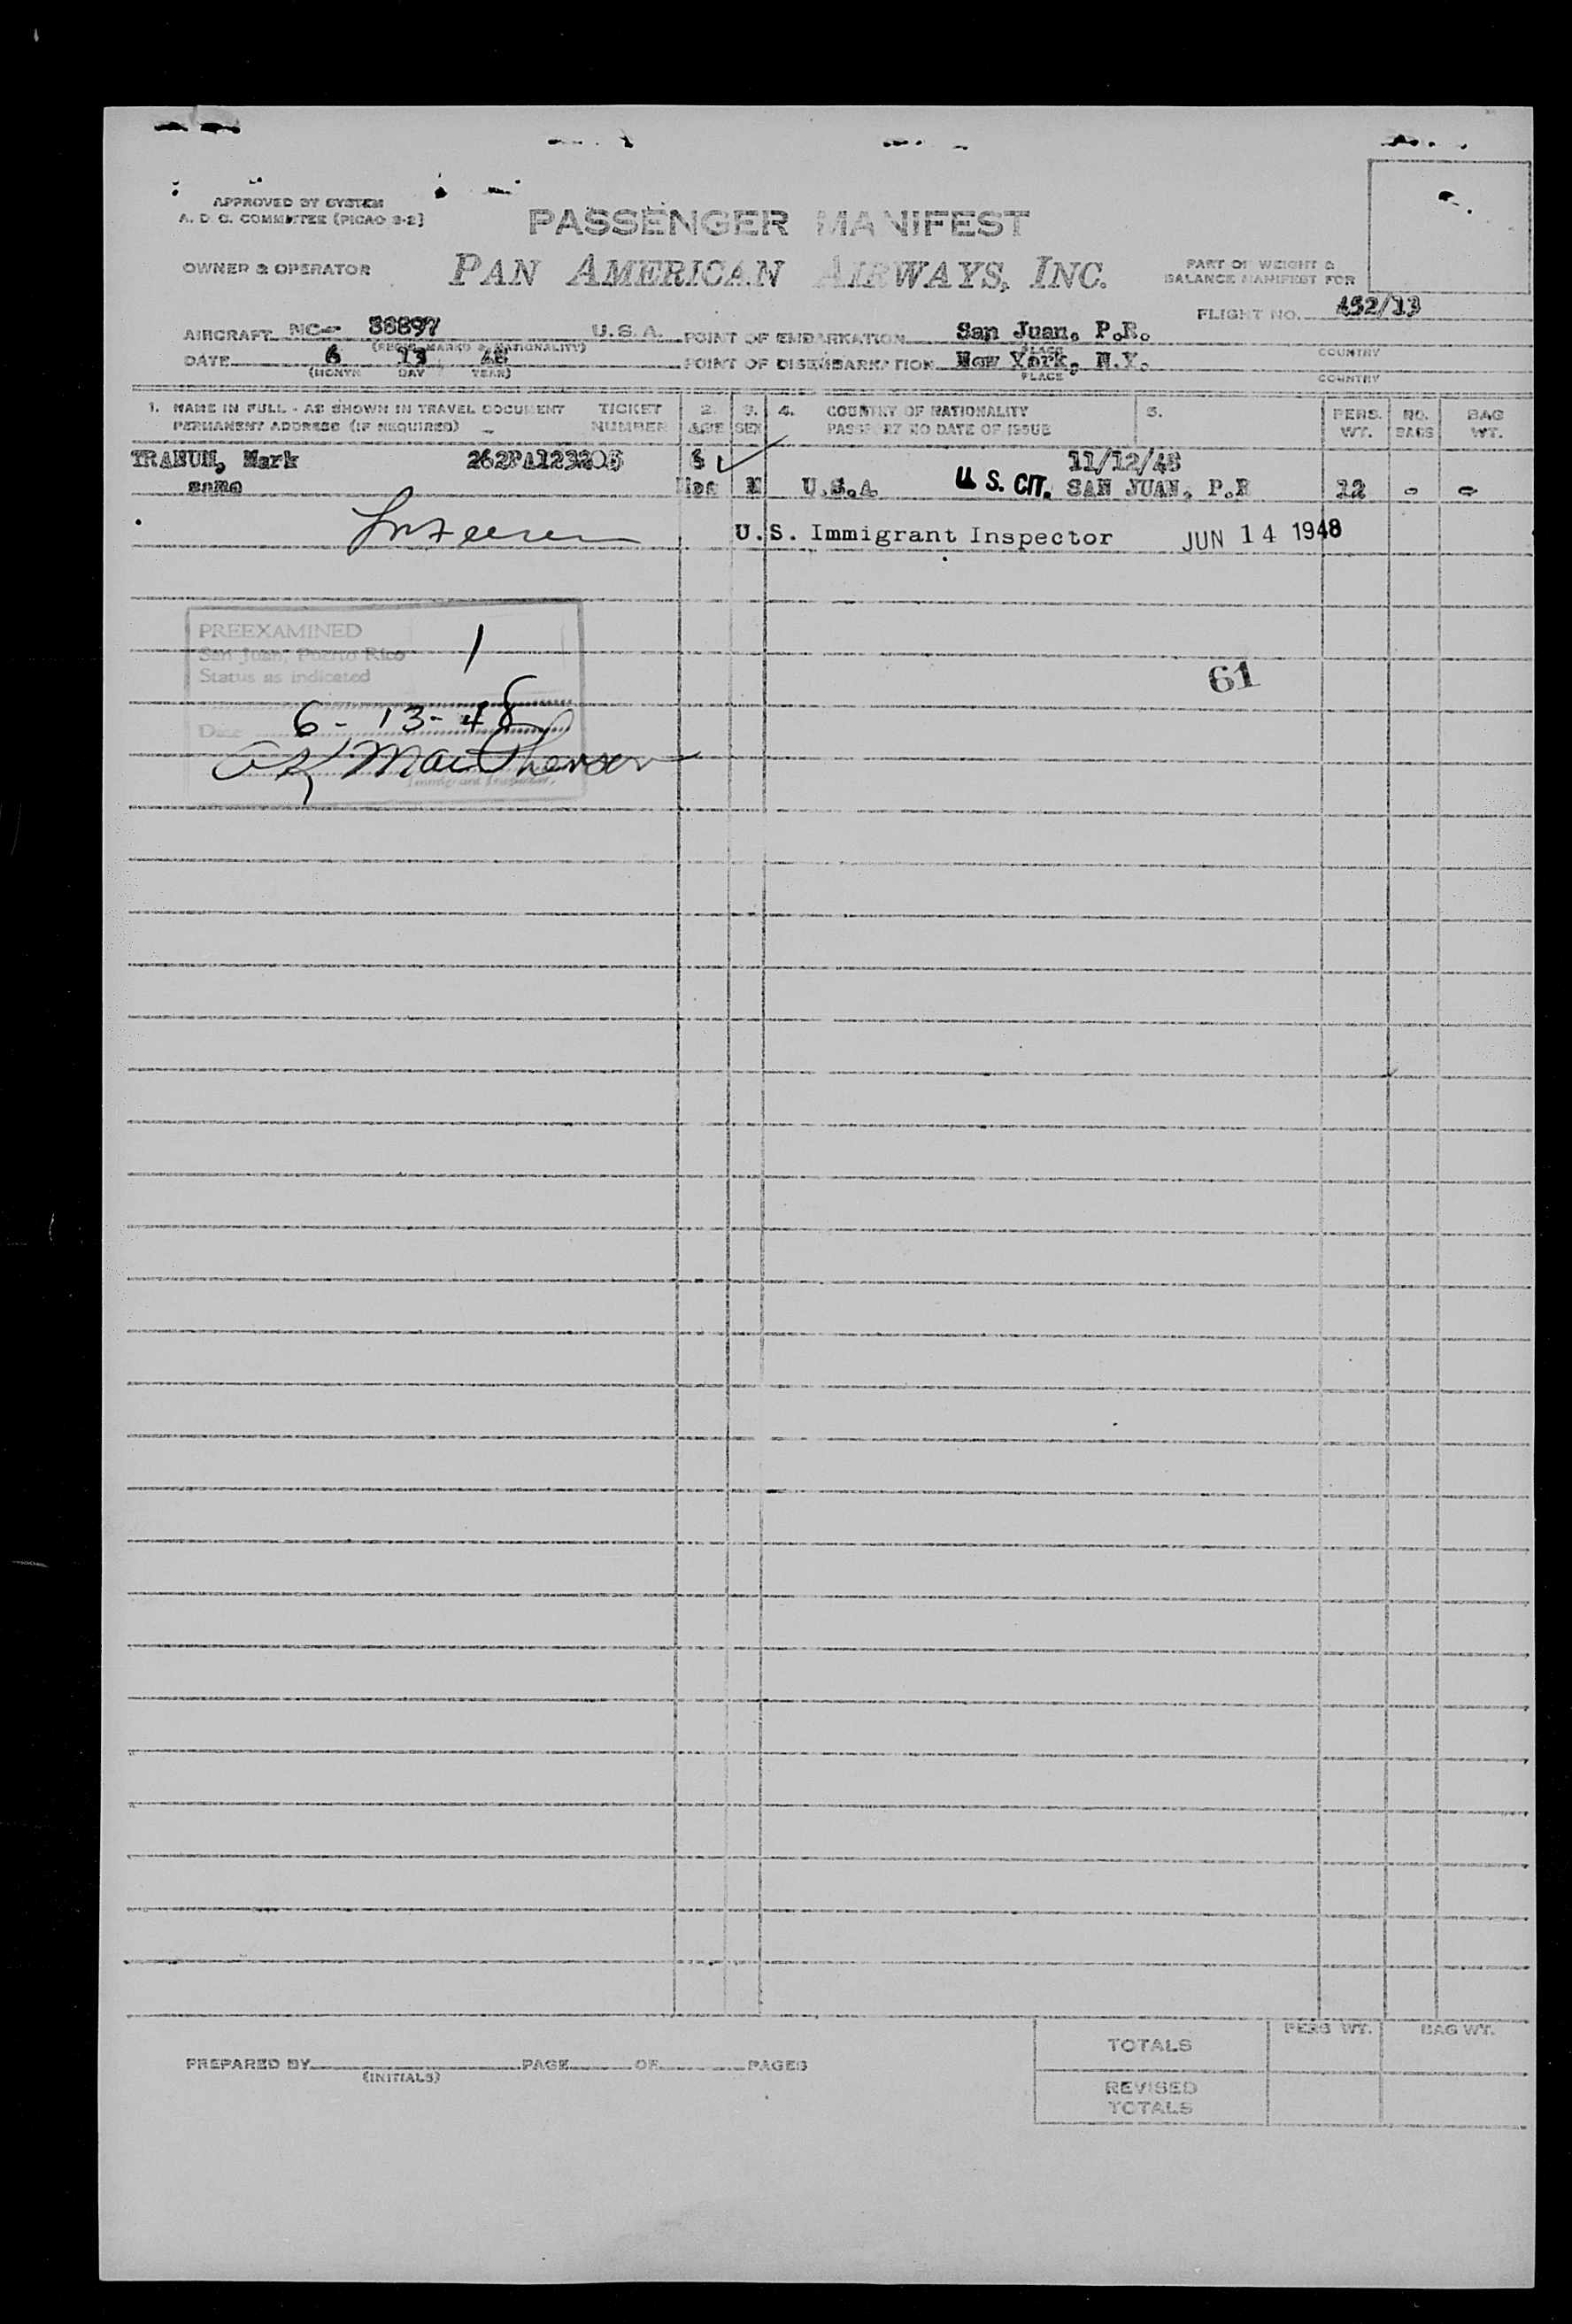 APPROVED BY SYSTEM
A. D. C. COMMITTEE (PICAO 3-2)
PASSENGER MANIFEST
OWNER & OPERATOR
PAN AMERICAN AIRWAYS, INC.
PART OF WEIGHT &
BALANCE MANIFEST FOR
FLIGHT NO. 432/13
AIRCRAFT NC- 88897 U.S.A. POINT OF EMBARKATION San Juan, P.R.
(REGIS. MARKS & NATIONALITY) PLACE COUNTRY
DATE 6 13 48 POINT OF DISEMBARKATION New York, N.Y.
(MONTH DAY YEAR) PLACE COUNTRY
1. NAME IN FULL - AS SHOWN IN TRAVEL DOCUMENT TICKET 2. 3. 4. COUNTRY OF NATIONALITY 5. PERS. NO. BAG
PERMANENT ADDRESS (IF REQUIRED) NUMBER AGE SEX PASSPORT NO DATE OF ISSUE WT. BAGS WT.
Mark 262PA123205 11/12/48
same Mos M U.S.A. U S. CIT. SAN JUAN, P.R 12 - -
U.S. Immigrant Inspector JUN 14 1948
PREEXAMINED
San Juan, Puerto Rico 1
Status as indicated
61
Date 6-13-48
MacPherson
Immigrant Inspector.
TOTALS PERS WT. BAG WT.
PREPARED BY PAGE OF PAGES
(INITIALS)
REVISED
TOTALS